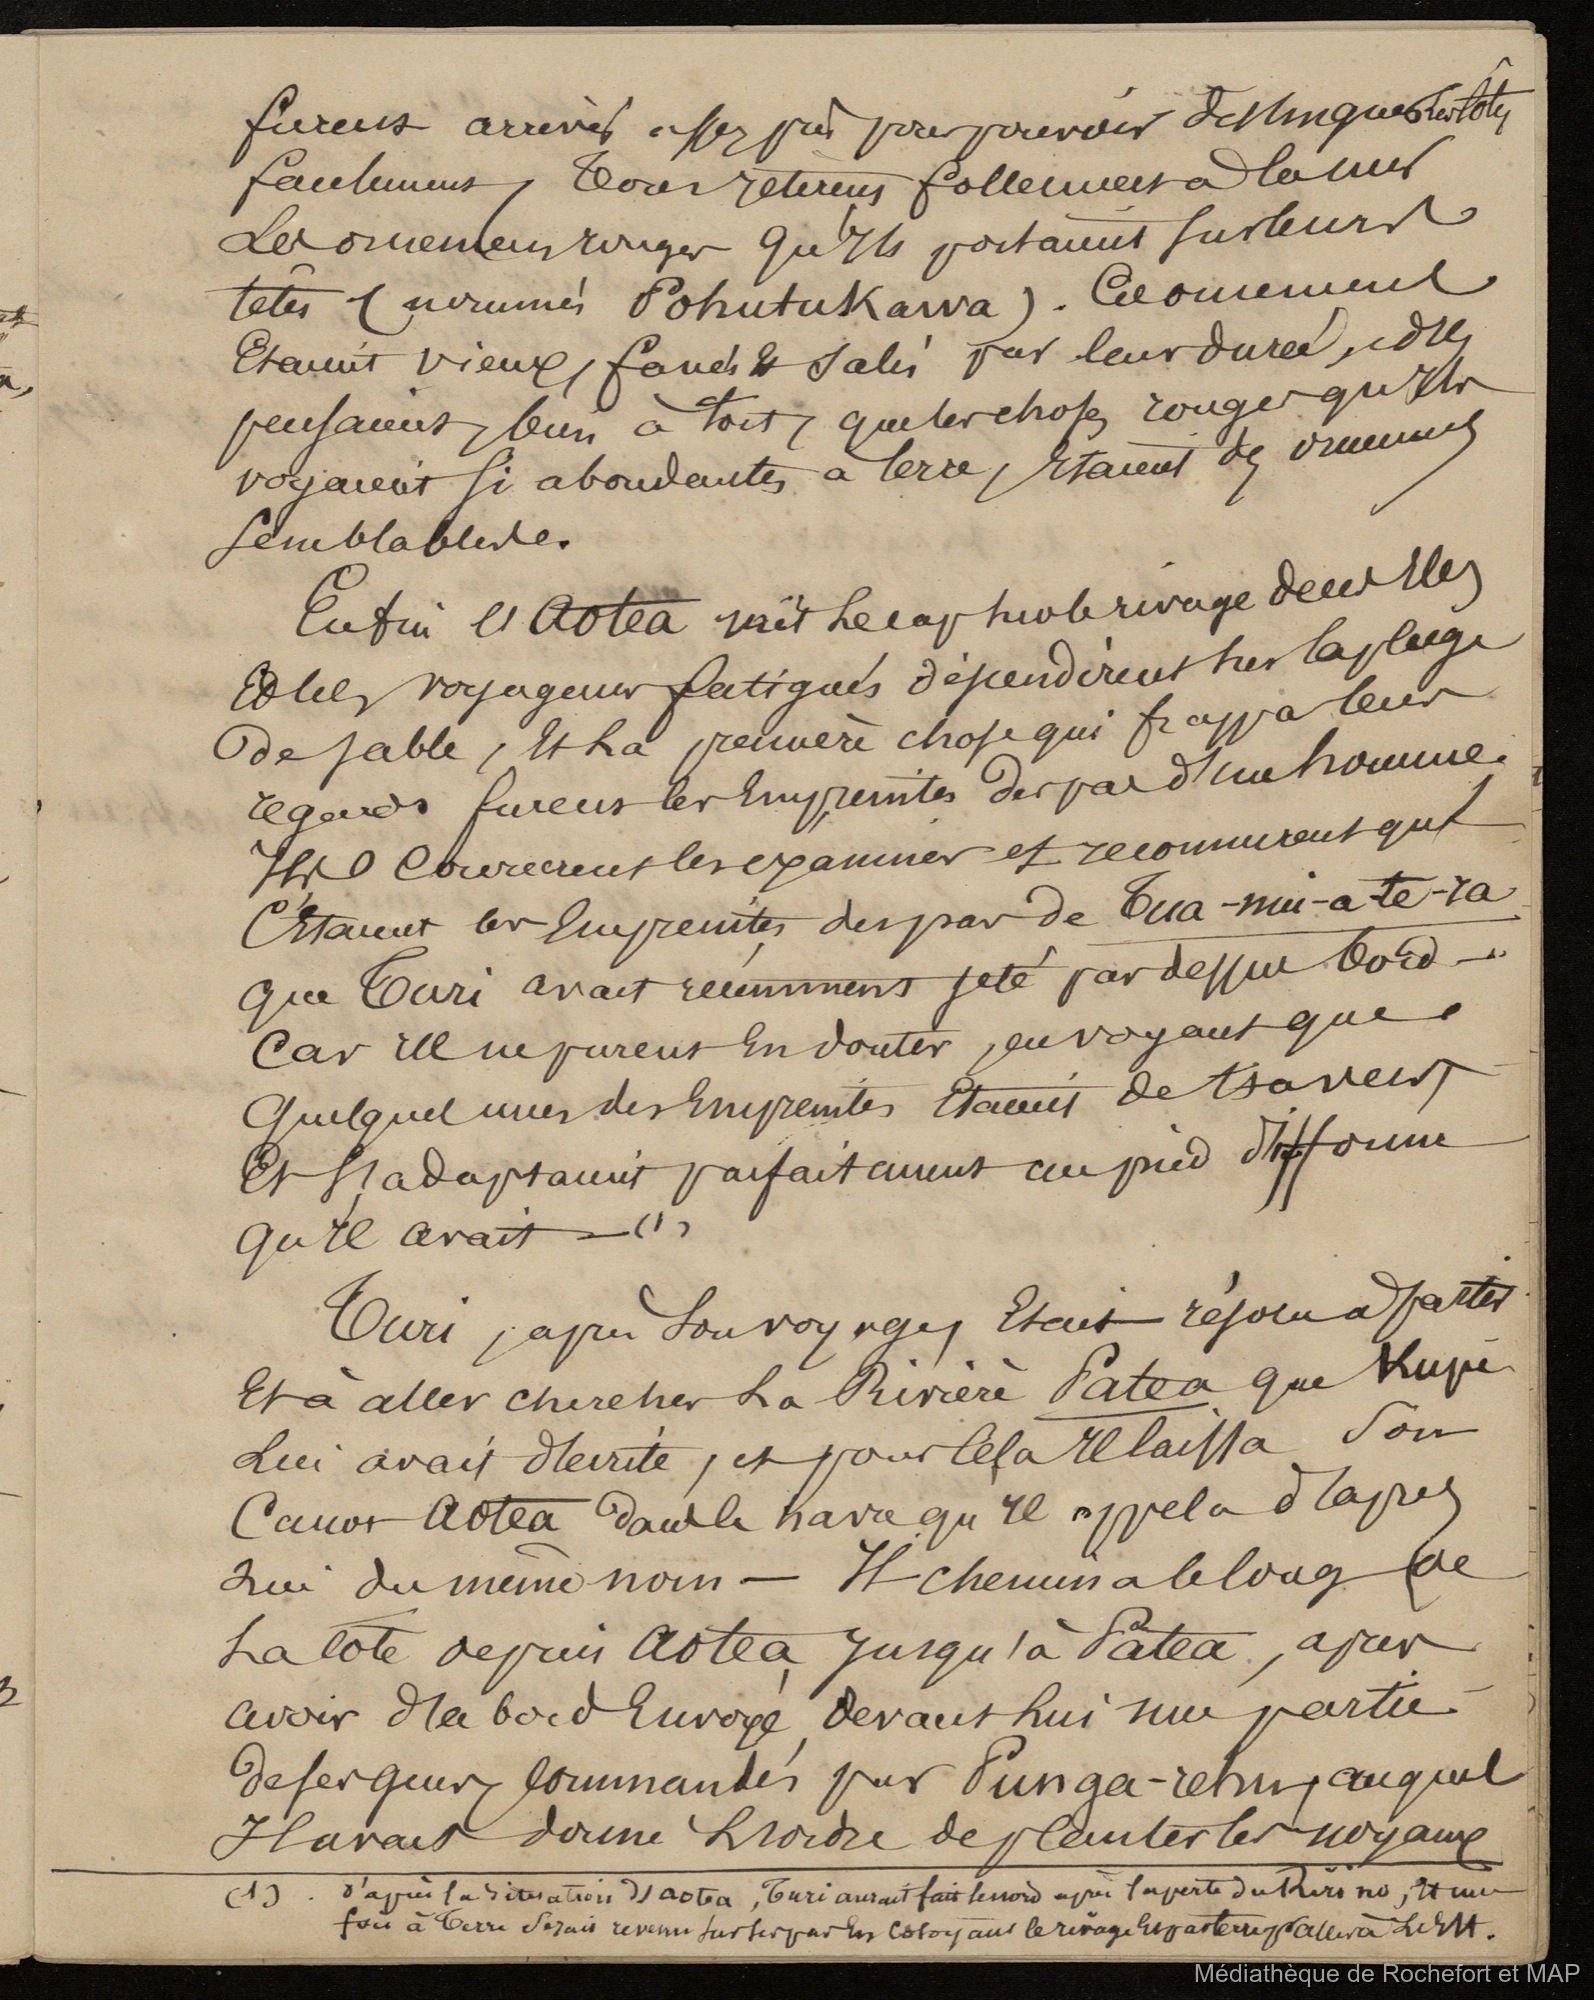 furent arrivés assez près pour pouvoir distinguer les côtes
facilement, tous jetèrent follement à la mer
Les ornemens rouges qu'ils portaient sur leurs
têtes (nommés Pohutukawa). Ces ornements
Etaient vieux, fanés et salis par leur durée, et ils
pensaient, bien à tort, que les choses rouges qu'ils
voyaient si abondantes à terre, étaient des ornements
semblables.
Enfin l'Aotea prit le cap sur le rivage de ces Iles
Et les voyageurs fatigués dépendirent sur la plage
De sable, et La première chose qui frappa leur
regards furent les Empreintes des pas d'un homme.
Ils coururent les examiner et reconnurent que
C'Etaient les Empreintes des pas de Tua-nui-a-te-ra
que Turi avait récemment jeté par dessus bord —
Car Ils ne purent En douter, en voyant que
Quelques unes des Empreintes Etaient de travers,
Et s'adaptaient parfaitement au pied difforme
qu'Il avait — (1)
Turi, après son voyage, Etait résolu à partir
Et à aller chercher La Rivière Patea que Kupe
Lui avait décrite, et pour cela Il laissa Son
Canot Aotea Dans le havre qu'Il appela d'après
Lui du même nom — Il chemina le long de
La côte depuis Aotea Jusqu'à Patea, après
avoir d'abord Envoyé Devant Lui une partie
De ses gens, commandés par Punga-rehu, auquel
Il avait donné L'ordre de planter les noyaux
(1). D'après la situation d'Aotea, Turi aurait fait le nord après la perte du Ririno, et une
fois à Terre serait revenu sur ses pas En côtoyant le rivage Et par terre pr aller à L'Est.
Médiathèque de Rochefort et MAP